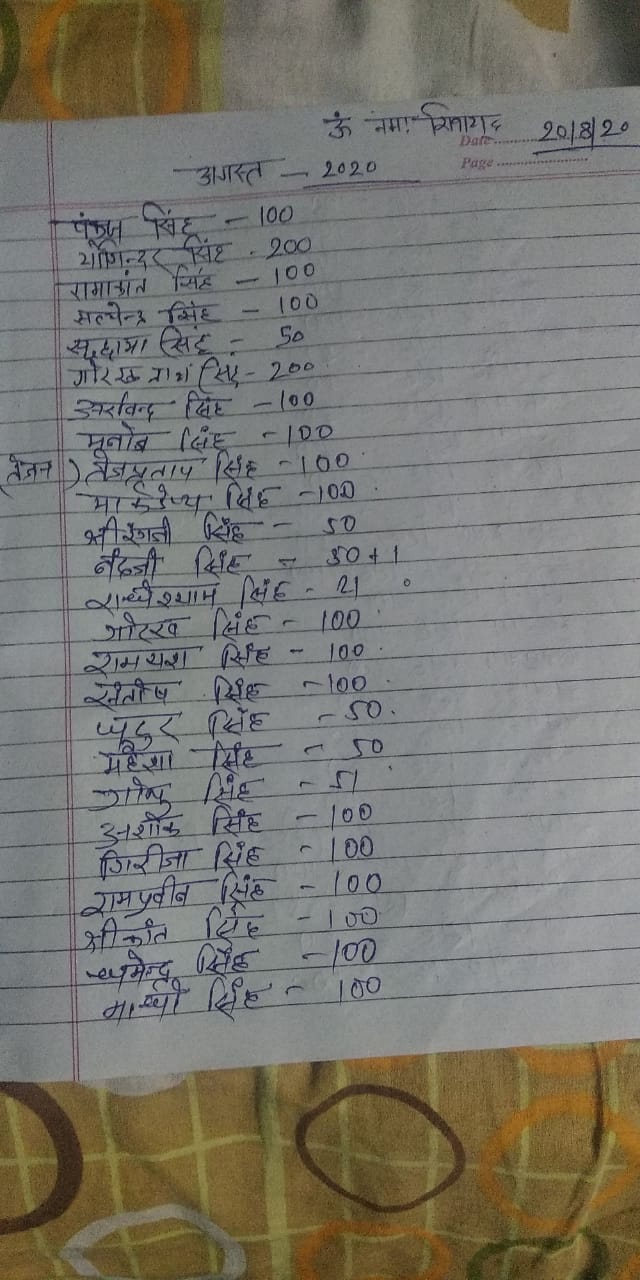 ॐ नमः शिवाय
Date 20/8/20
Page
अगस्त — 2020
पंकज सिंह — 100
योगिन्दर सिंह - 200
रामाकांत सिंह — 100
सत्येन्द्र सिंह — 100
सुदामा सिंह - 50
गोरख नाथ सिंह - 200
अरविन्द सिंह — 100
मनोज सिंह - 100
तेजप्रताप सिंह - 100
मार्कडेण्य सिंह - 100
श्री रंगजी सिंह - 50
नंदजी सिंह - 50 + 1
राधेश्याम सिंह - 21
गोरख सिंह - 100
रामयश सिंह - 100
संतोष सिंह - 100
सिंह - 50
महेश सिंह - 50
गोलू सिंह - 51
अशोक सिंह - 100
गिरीजा सिंह - 100
रामप्रवीन सिंह - 100
श्रीकांत सिंह - 100
धमेन्द्र सिंह - 100
सिंह - 100